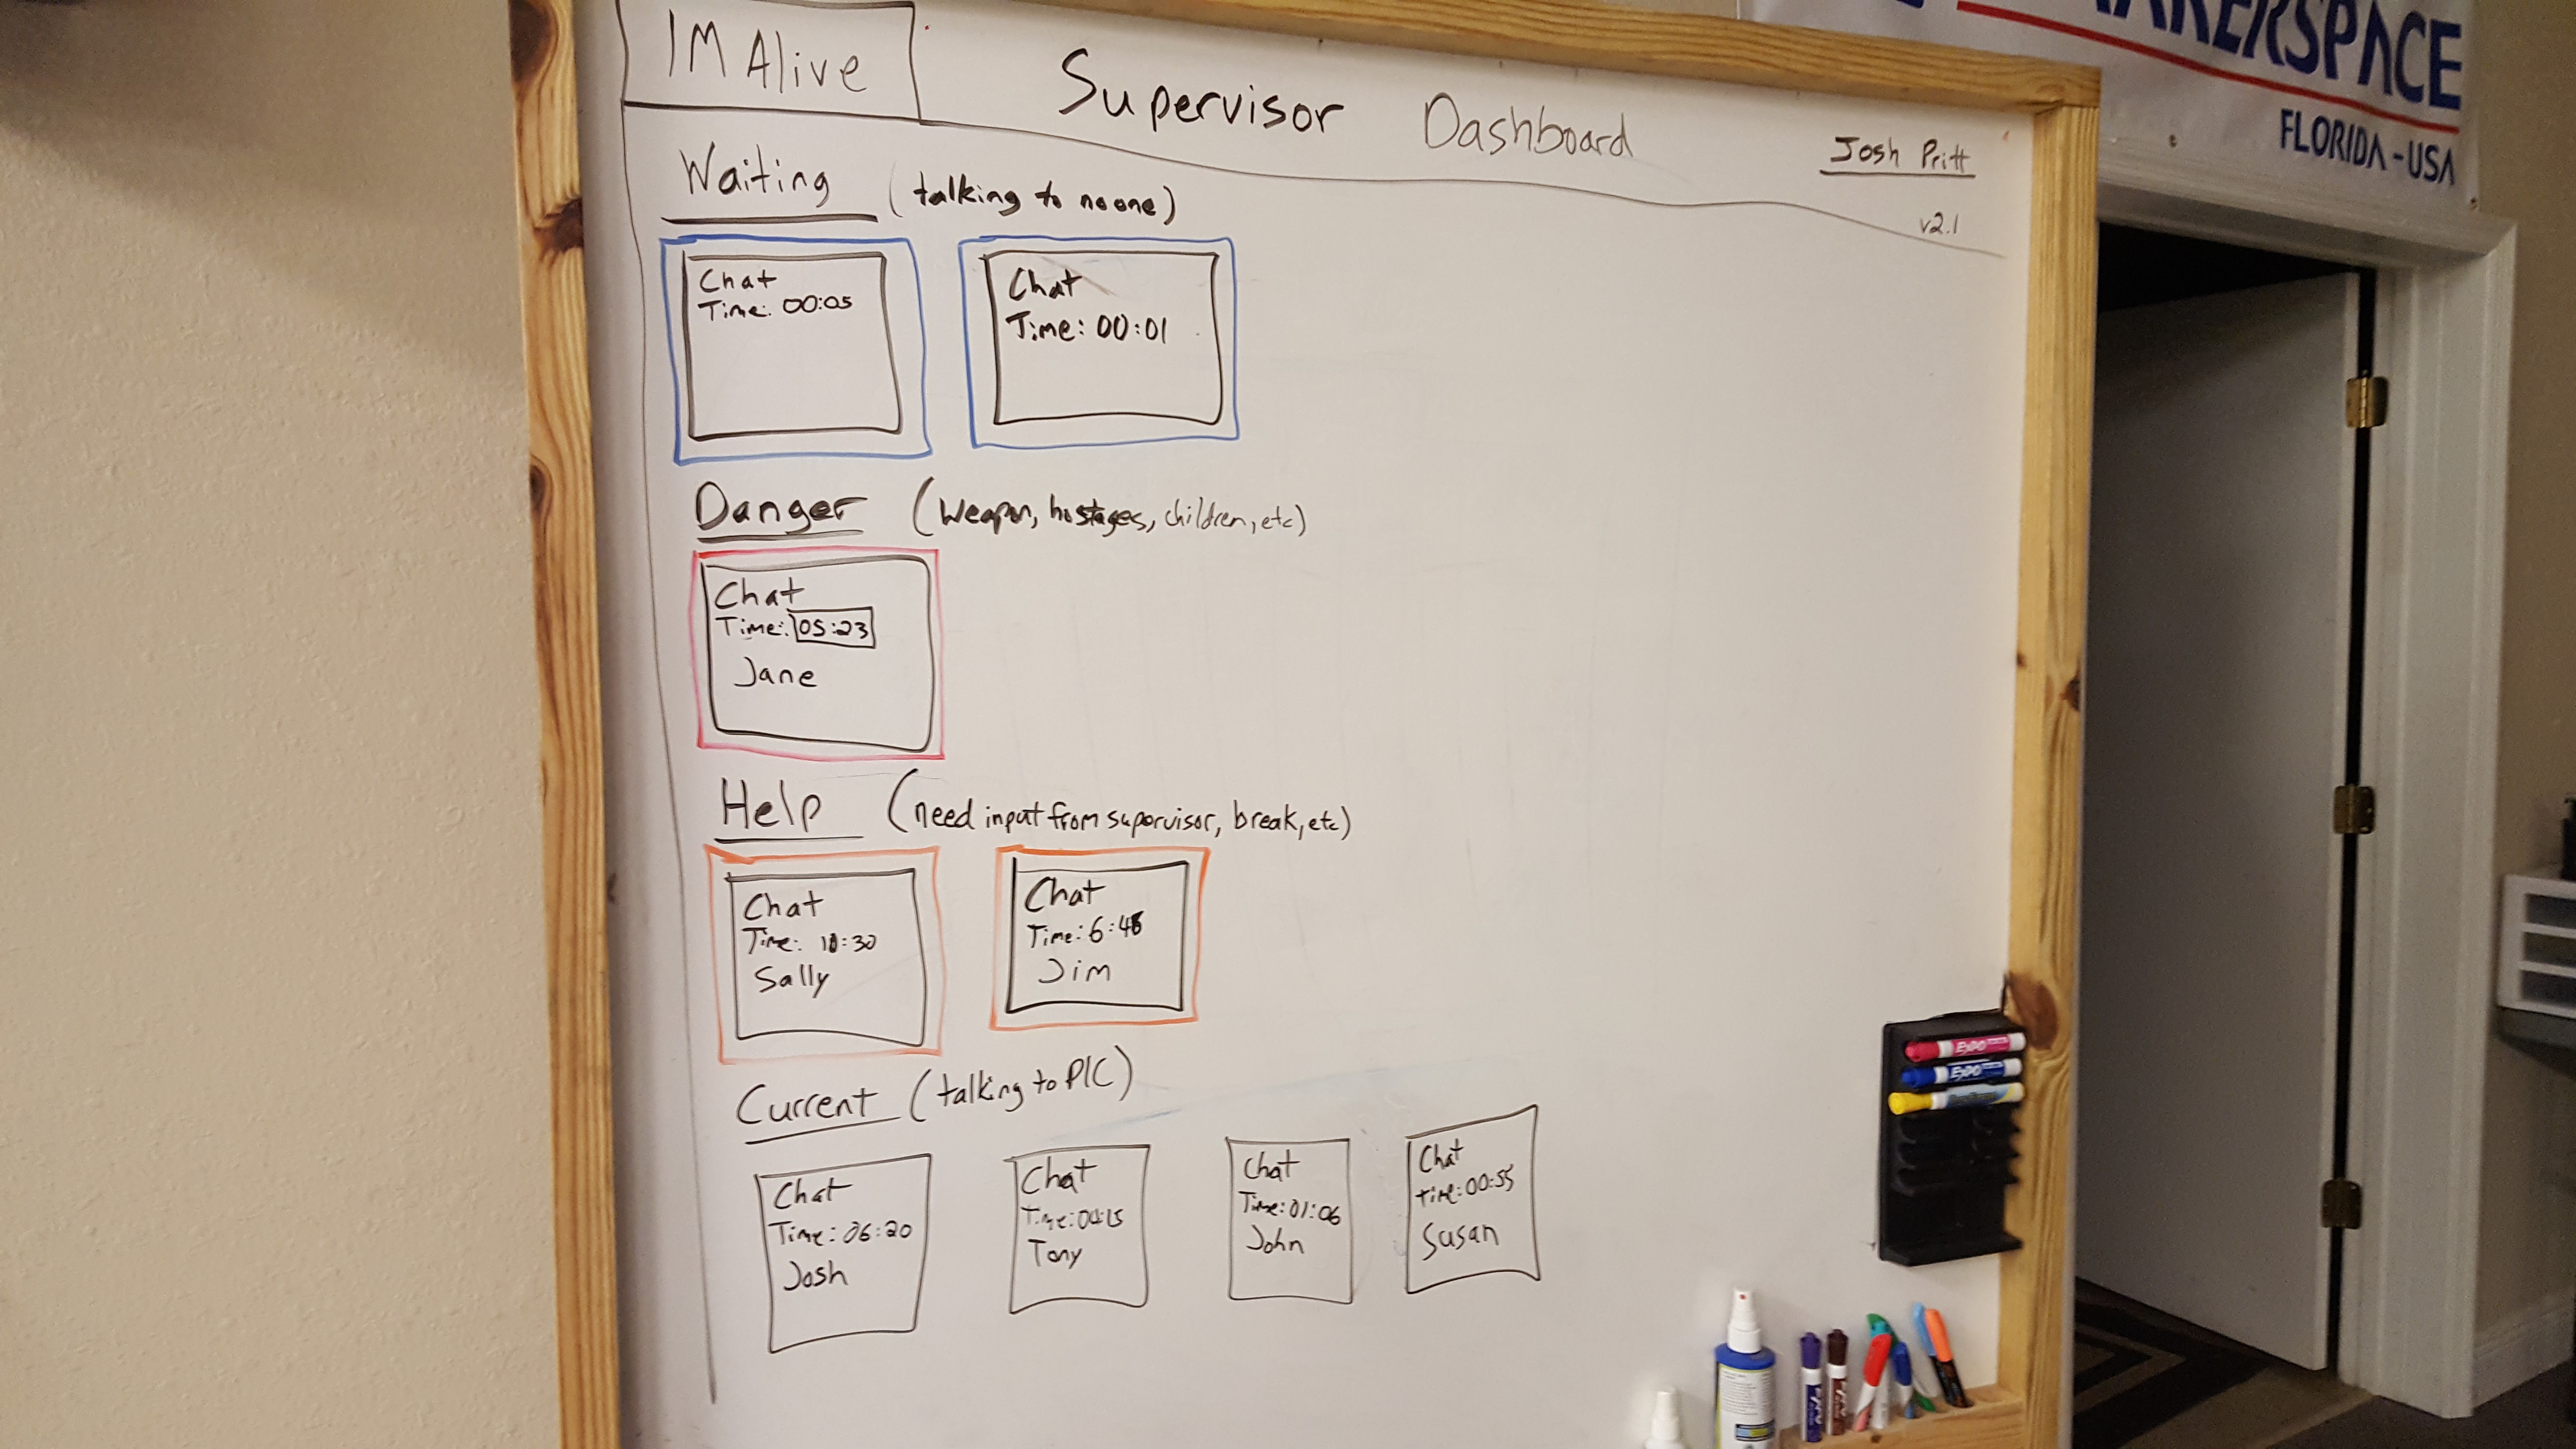 IM Alive
Supervisor Dashboard
Josh Pritt
v2.1
Waiting (talking to no one)
Chat
Time: 00:05
Chat
Time: 00:01
Danger (weapon, hostages, children, etc)
Chat
Time: 05:23
Jane
Help (need input from supervisor, break, etc)
Chat
Time: 10:30
Sally
Chat
Time: 6:45
Jim
Current (talking to PIC)
Chat
Time: 06:20
Josh
Chat
Time: 04:15
Tony
Chat
Time: 01:06
John
Chat
time: 00:55
Susan
FLORIDA - USA
EXPO
EXPO